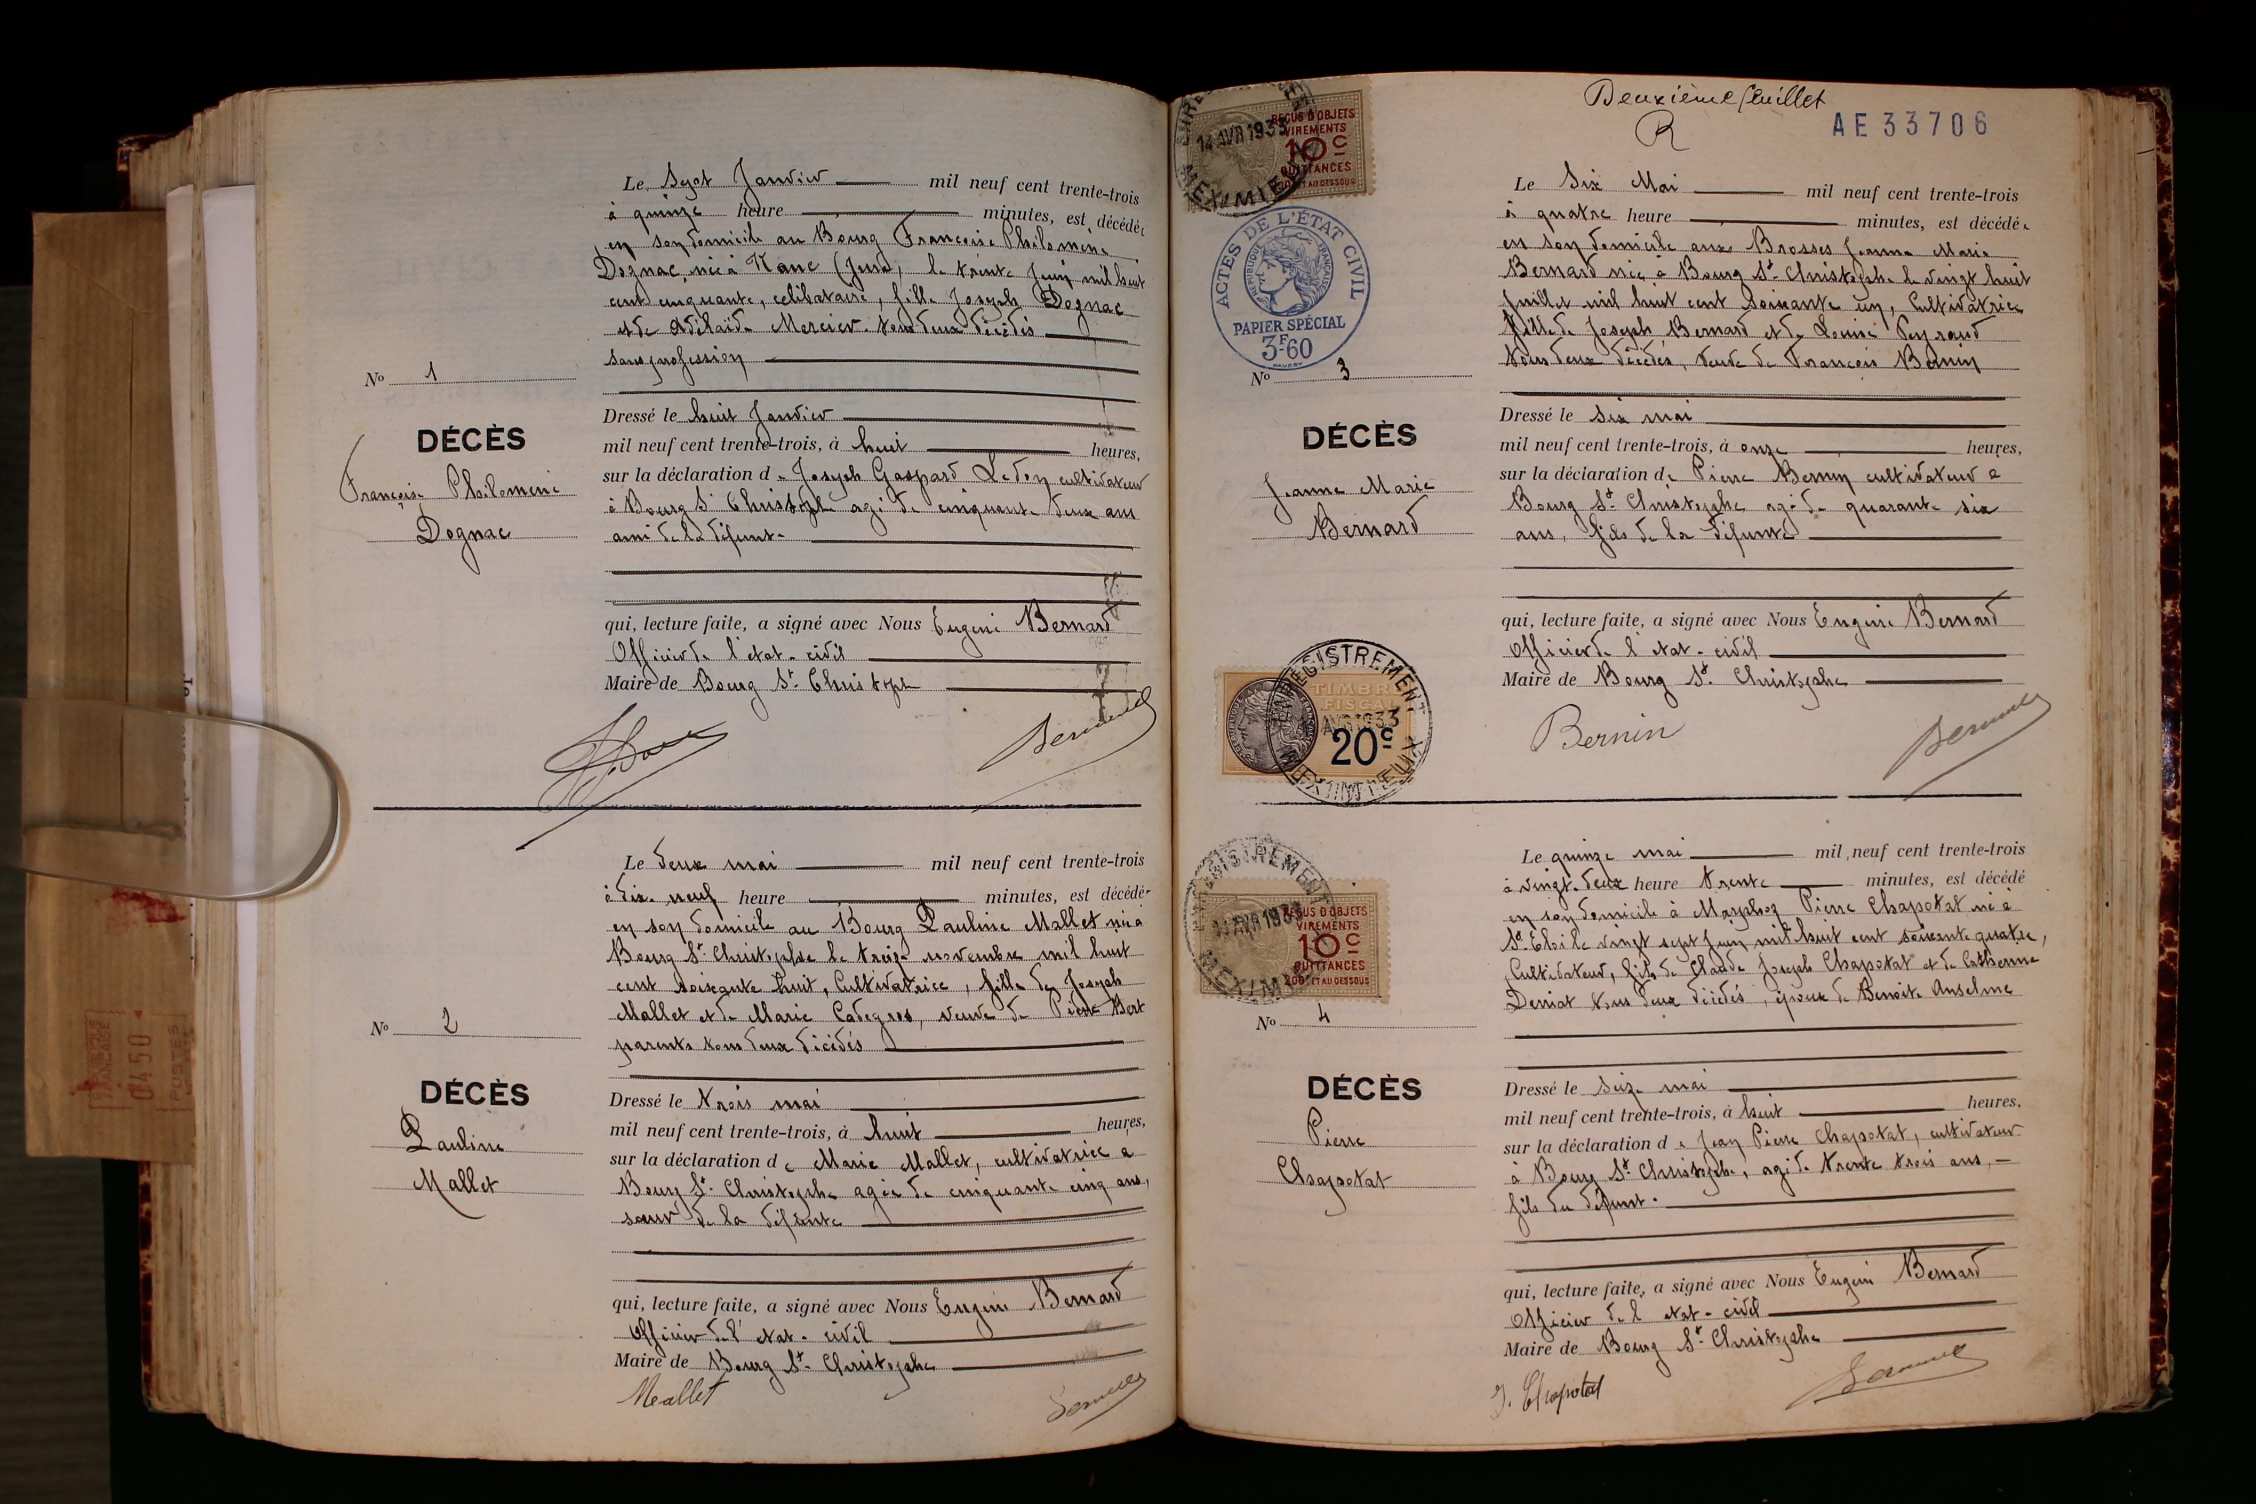 Le Sept Janvier mil neuf cent trente-trois
à quinze heure minutes, est décédée
en son domicile au Bourg Françoise Philomène
Dognac, née à Nanc (Jura), le trente Juin mil huit
cent cinquante, célibataire, fille Joseph Dognac
et de Adélaïde Mercier. tous deux décédés
sans profession
No 1
DÉCÈS
Françoise Philomène
Dognac
Dressé le huit Janvier
mil neuf cent trente-trois, à huit heures,
sur la déclaration de Joseph Gaspard cultivateur
à Bourg St Christophe agé de cinquante deux ans
ami de la défunte
qui, lecture faite, a signé avec Nous Eugène Bernard
Officier de l'état-civil
Maire de Bourg St. Christophe
Le deux mai mil neuf cent trente-trois
à dix-neuf heure minutes, est décédée
en son domicile au Bourg Pauline Mallet née à
Bourg St. Christophe le treize novembre mil huit
cent soixante huit, Cultivatrice, fille de Joseph
Mallet et de Marie, veuve de Pierre Bert
parents tous deux décédés
No 2
DÉCÈS
Pauline
Mallet
Dressé le trois mai
mil neuf cent trente-trois, à huit heures,
sur la déclaration de Marie Mallet, cultivatrice à
Bourg St. Christophe agée de cinquante cinq ans,
sœur de la défunte
qui, lecture faite, a signé avec Nous Eugène Bernard
Officier de l'état-civil
Maire de Bourg St. Christophe
Mallet
Deuxième feuillet
R
AE 33706
14 AVR 1933
REÇUS D'OBJETS
VIREMENTS
10c
QUITTANCES
MEXIMIEUX
ACTES DE L'ÉTAT CIVIL
RÉPUBLIQUE FRANÇAISE
PAPIER SPÉCIAL
3F60
Le Six Mai mil neuf cent trente-trois
à quatre heure minutes, est décédée
en son domicile aux Brosses Jeanne Marie
Bernard née à Bourg St. Christophe le vingt huit
Juillet mil huit cent soixante un, Cultivatrice
fille de Joseph Bernard et de Louise Peyraud
tous deux décédés, veuve de François Bernin
No 3
DÉCÈS
Jeanne Marie
Bernard
Dressé le six mai
mil neuf cent trente-trois, à onze heures,
sur la déclaration de Pierre Bernin cultivateur à
Bourg St. Christophe agé de quarante six
ans, fils de la défunte
qui, lecture faite, a signé avec Nous Eugène Bernard
Officier de l'état-civil
Maire de Bourg St. Christophe
Bernin
ENREGISTREMENT
TIMBRE
FISCAL
AVR 1933
20c
MEXIMIEUX
ENREGISTREMENT
AVR 1933
REÇUS D'OBJETS
VIREMENTS
10c
QUITTANCES
200F ET AU DESSOUS
Le quinze mai mil neuf cent trente-trois
à vingt-deux heure trente minutes, est décédé
en son domicile à Pierre Chapotat né à
St. Eloi le vingt sept Juin mil huit cent soixante quatre,
Cultivateur, fils de Claude Joseph Chapotat et de Catherine
Derriat tous deux décédés, époux de Benoite Anselme
No 4
DÉCÈS
Pierre
Chapotat
Dressé le seize mai
mil neuf cent trente-trois, à huit heures.
sur la déclaration de Jean Pierre Chapotat, cultivateur
à Bourg St. Christophe, agé de trente trois ans,
fils du défunt.
qui, lecture faite, a signé avec Nous Eugène Bernard
Officier de l'état-civil
Maire de Bourg St. Christophe
J. Chapotat
0450
POSTES